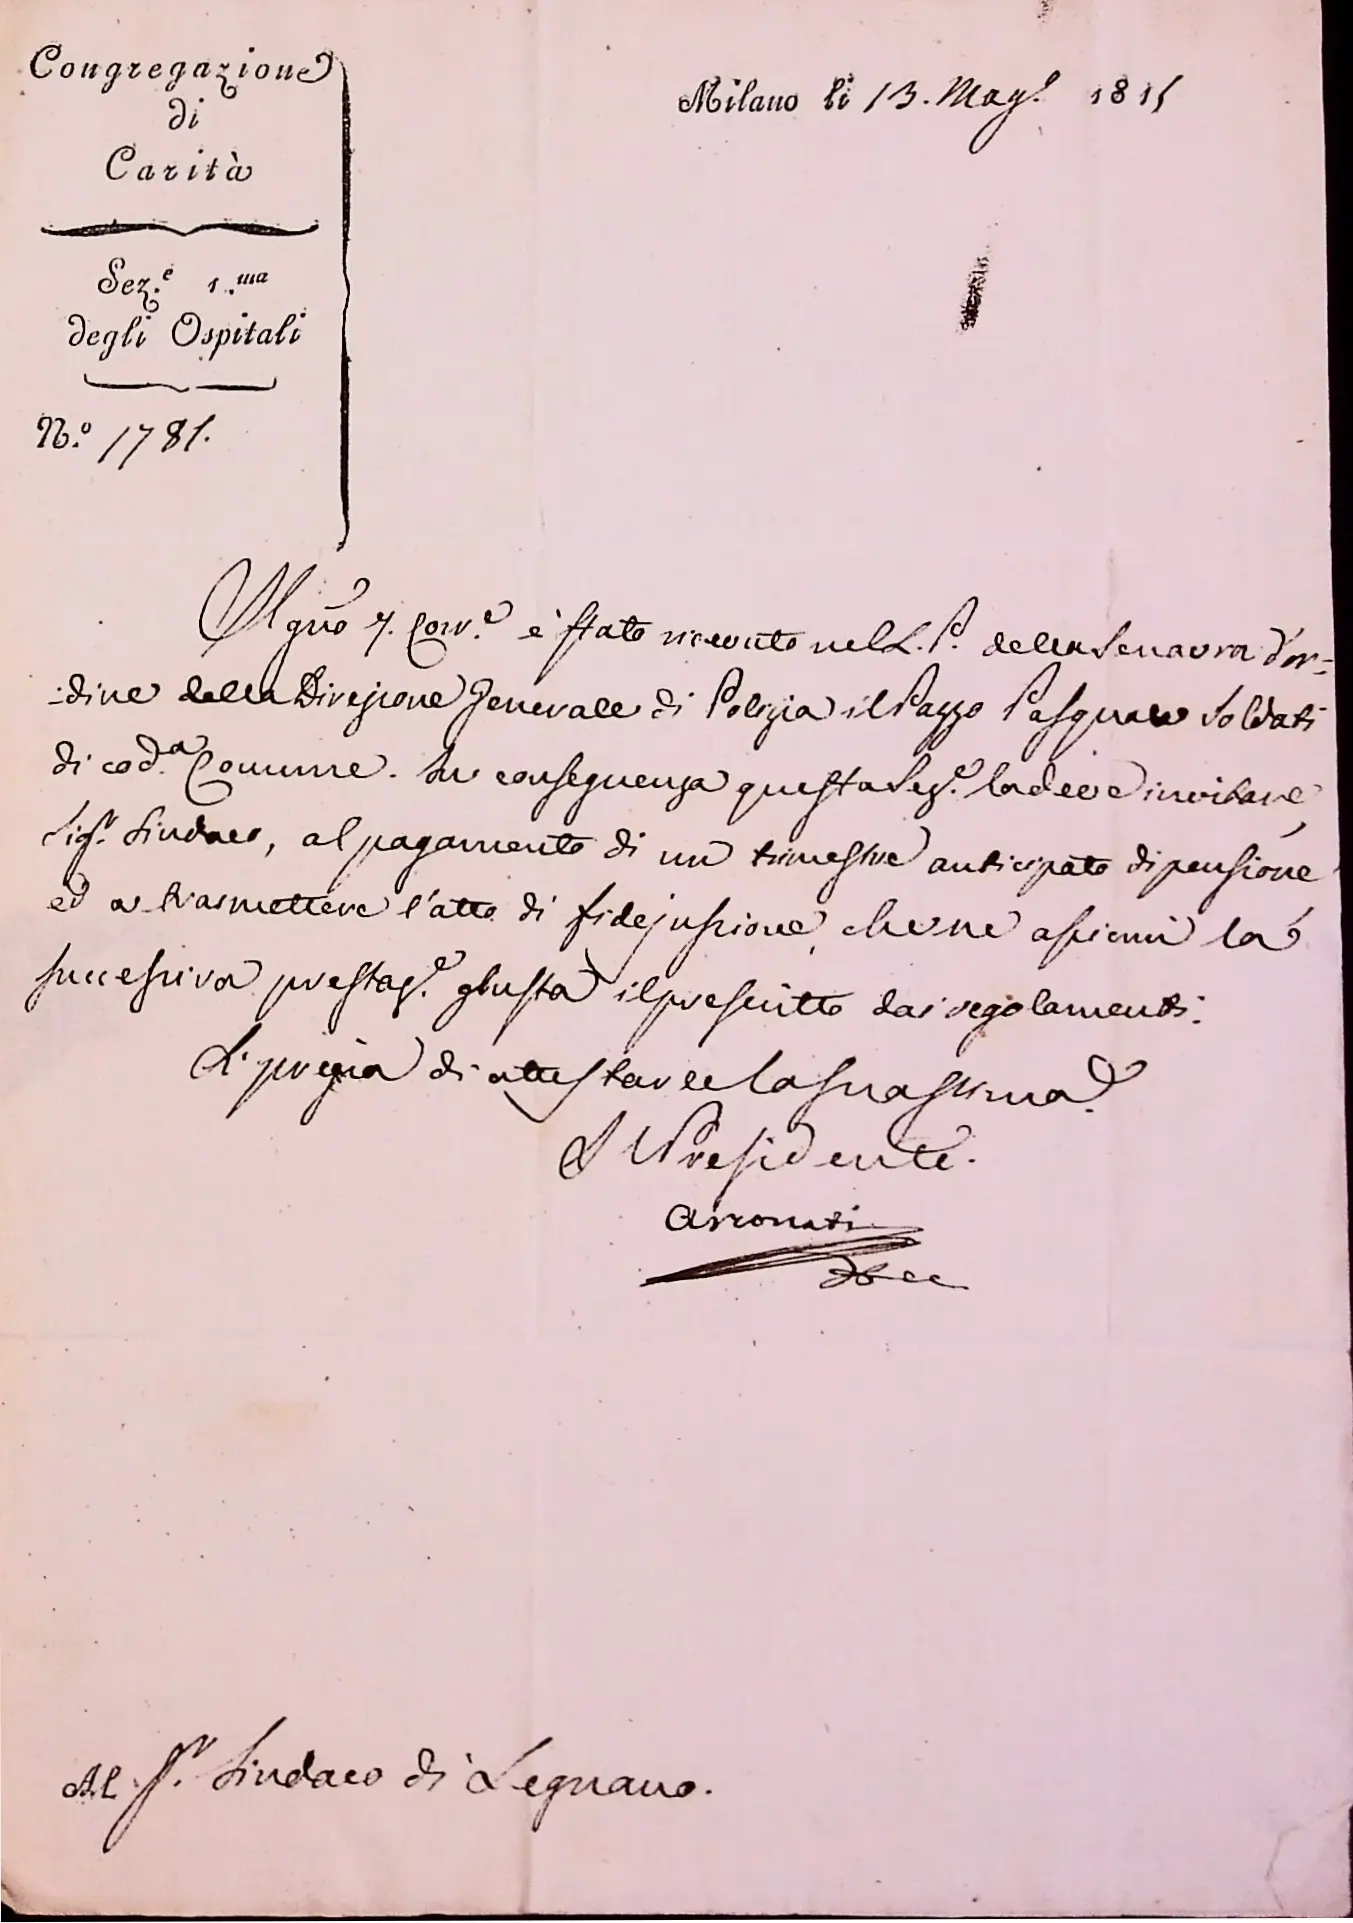 Congregazione
di
Carità
Sez.e 1.ma
degli Ospitali
N.o 1781.
Milano li 13. Mag.o 181
Al gno 7. Corr.e è stato ricevuto nel L. P. della Senavra d'or=
=dine della Direzione Generale di Polizia il Pazzo Pasquale Soldati
di cod.a Comune. In conseguenza questa Sez.e la deve invitare,
Sig.r Sindaco, al pagamento di un trimestre anticipato di pensione
ed a trasmettere l'atto di fidejussione, che ne assicuri la
successiva prestaz.e giusta il prescritto dai regolamenti.
Si pregia di attestarle la sua stima.
Il Presidente.
Arconati
Al S.r Sindaco di Legnano.